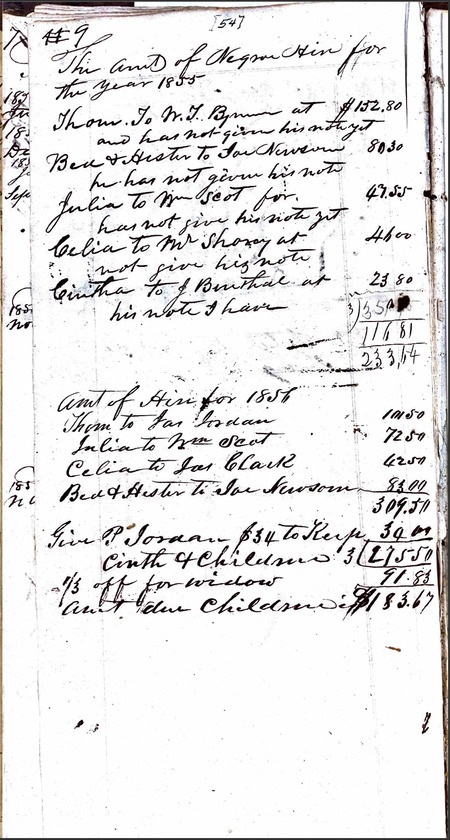 [54]
# 9
The Amt of Negroe Hire for
the year 1855
Thom. To W. T. Bynum at $152.80
and has not given his note yet
Bed & Hester to Joe Newsom 80.30
he has not given his note
Julia to Wm Scot for. 47.55
has not give his note yet
Celia to Mr at 46.00
not give his note
Cintha to J at 23 80
his note I have
3)350
116 81
233,64
Amt of Hire for 1856
Thom to Jas Jordan
Julia to Wm Scot 72 50
Celia to Jas Clark 42 50
Bed & Hester to Joe Newsom 83 00
309.50
Give P Jordan $34 to Keep 34 00
Cinth & Children 3(275 50
1/3 off for widow 91.83
Amt due Children is $183.67